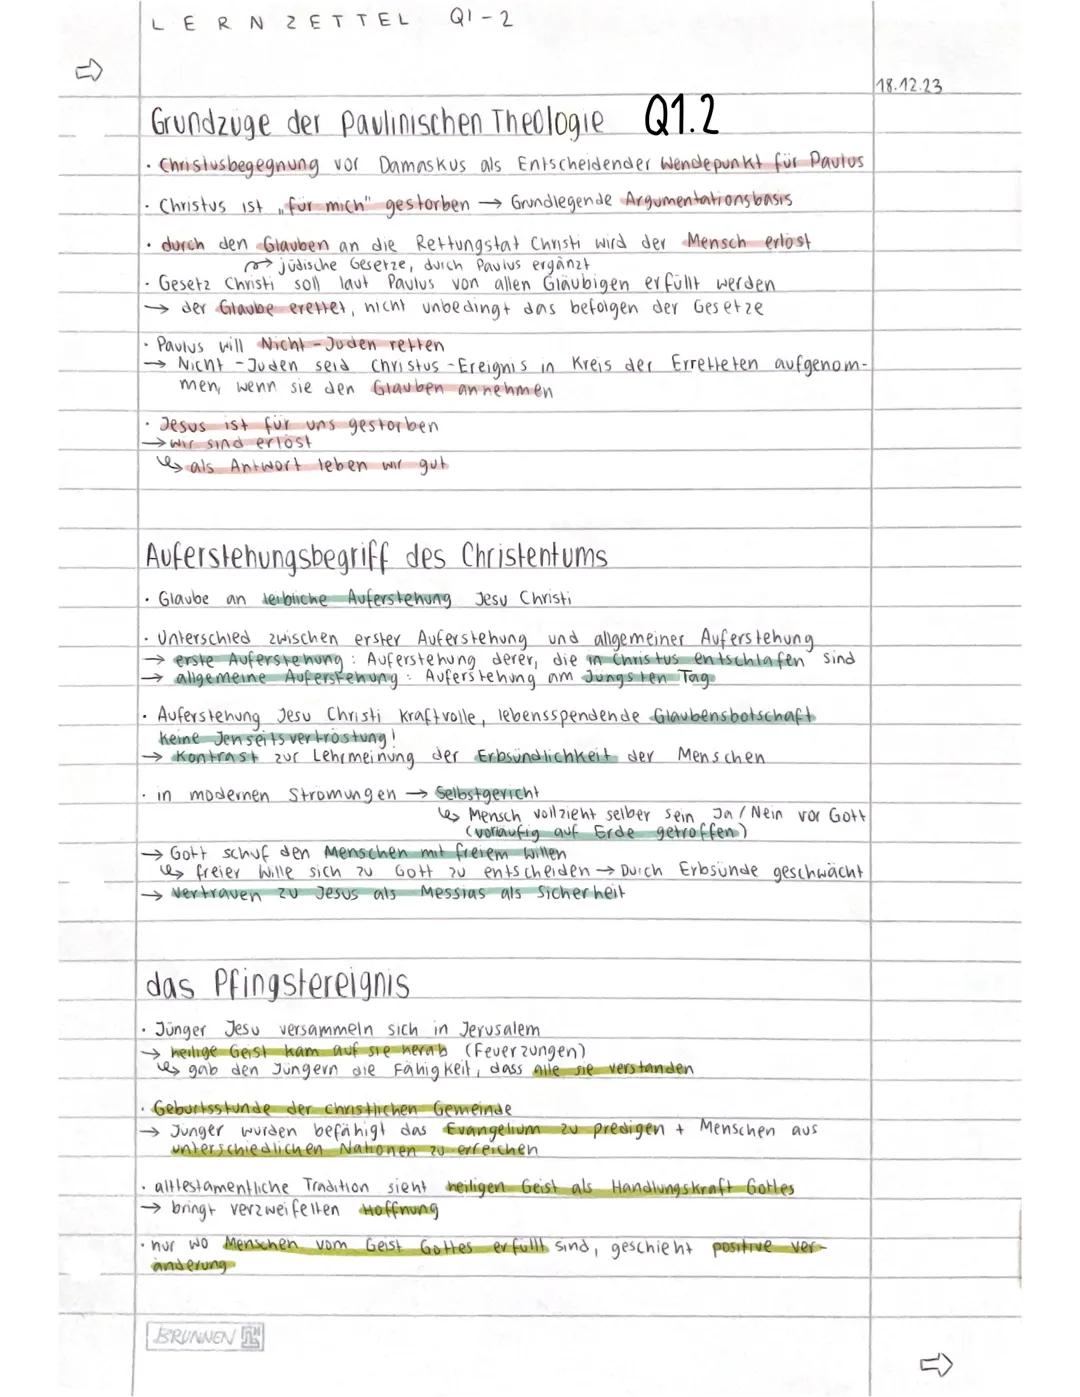 LERNZETTEL Q1-2
18.12.23
Grundzüge der Paulinischen Theologie Q1.2
· Christusbegegnung vor Damaskus als Entscheidender Wendepunkt für Paulus
· Christus ist „für mich" gestorben → Grundlegende Argumentationsbasis
· durch den Glauben an die Rettungstat Christi wird der Mensch erlöst
→ jüdische Gesetze, durch Paulus ergänzt
· Gesetz Christi soll laut Paulus von allen Gläubigen erfüllt werden
→ der Glaube errettet, nicht unbedingt das befolgen der Gesetze
· Paulus will Nicht-Juden retten
→ Nicht-Juden seid Christus-Ereignis in Kreis der Erretteten aufgenom-
men, wenn sie den Glauben annehmen
· Jesus ist für uns gestorben
→ wir sind erlöst
↳ als Antwort leben wir gut
Auferstehungsbegriff des Christentums
· Glaube an leibliche Auferstehung Jesu Christi
· Unterschied zwischen erster Auferstehung und allgemeiner Auferstehung
→ erste Auferstehung: Auferstehung derer, die in Christus entschlafen sind
→ allgemeine Auferstehung: Auferstehung am Jüngsten Tag
· Auferstehung Jesu Christi kraftvolle, lebensspendende Glaubensbotschaft
keine Jenseitsvertröstung!
→ Kontrast zur Lehrmeinung der Erbsündlichkeit der Menschen
· in modernen Strömungen → Selbstgericht
↳ Mensch vollzieht selber sein Ja/Nein vor Gott
(vorläufig auf Erde getroffen)
→ Gott schuf den Menschen mit freiem Willen
↳ freier Wille sich zu Gott zu entscheiden → Durch Erbsünde geschwächt
→ Vertrauen zu Jesus als Messias als Sicherheit
das Pfingstereignis
· Jünger Jesu versammeln sich in Jerusalem
→ heilige Geist kam auf sie herab (Feuerzungen)
↳ gab den Jüngern die Fähigkeit, dass alle sie verstanden
· Geburtsstunde der christlichen Gemeinde
→ Jünger wurden befähigt das Evangelium zu predigen + Menschen aus
unterschiedlichen Nationen zu erreichen
· alttestamentliche Tradition sieht heiligen Geist als Handlungskraft Gottes
→ bringt verzweifelten Hoffnung
· nur wo Menschen vom Geist Gottes erfüllt sind, geschieht positive ver-
änderung
BRUNNEN